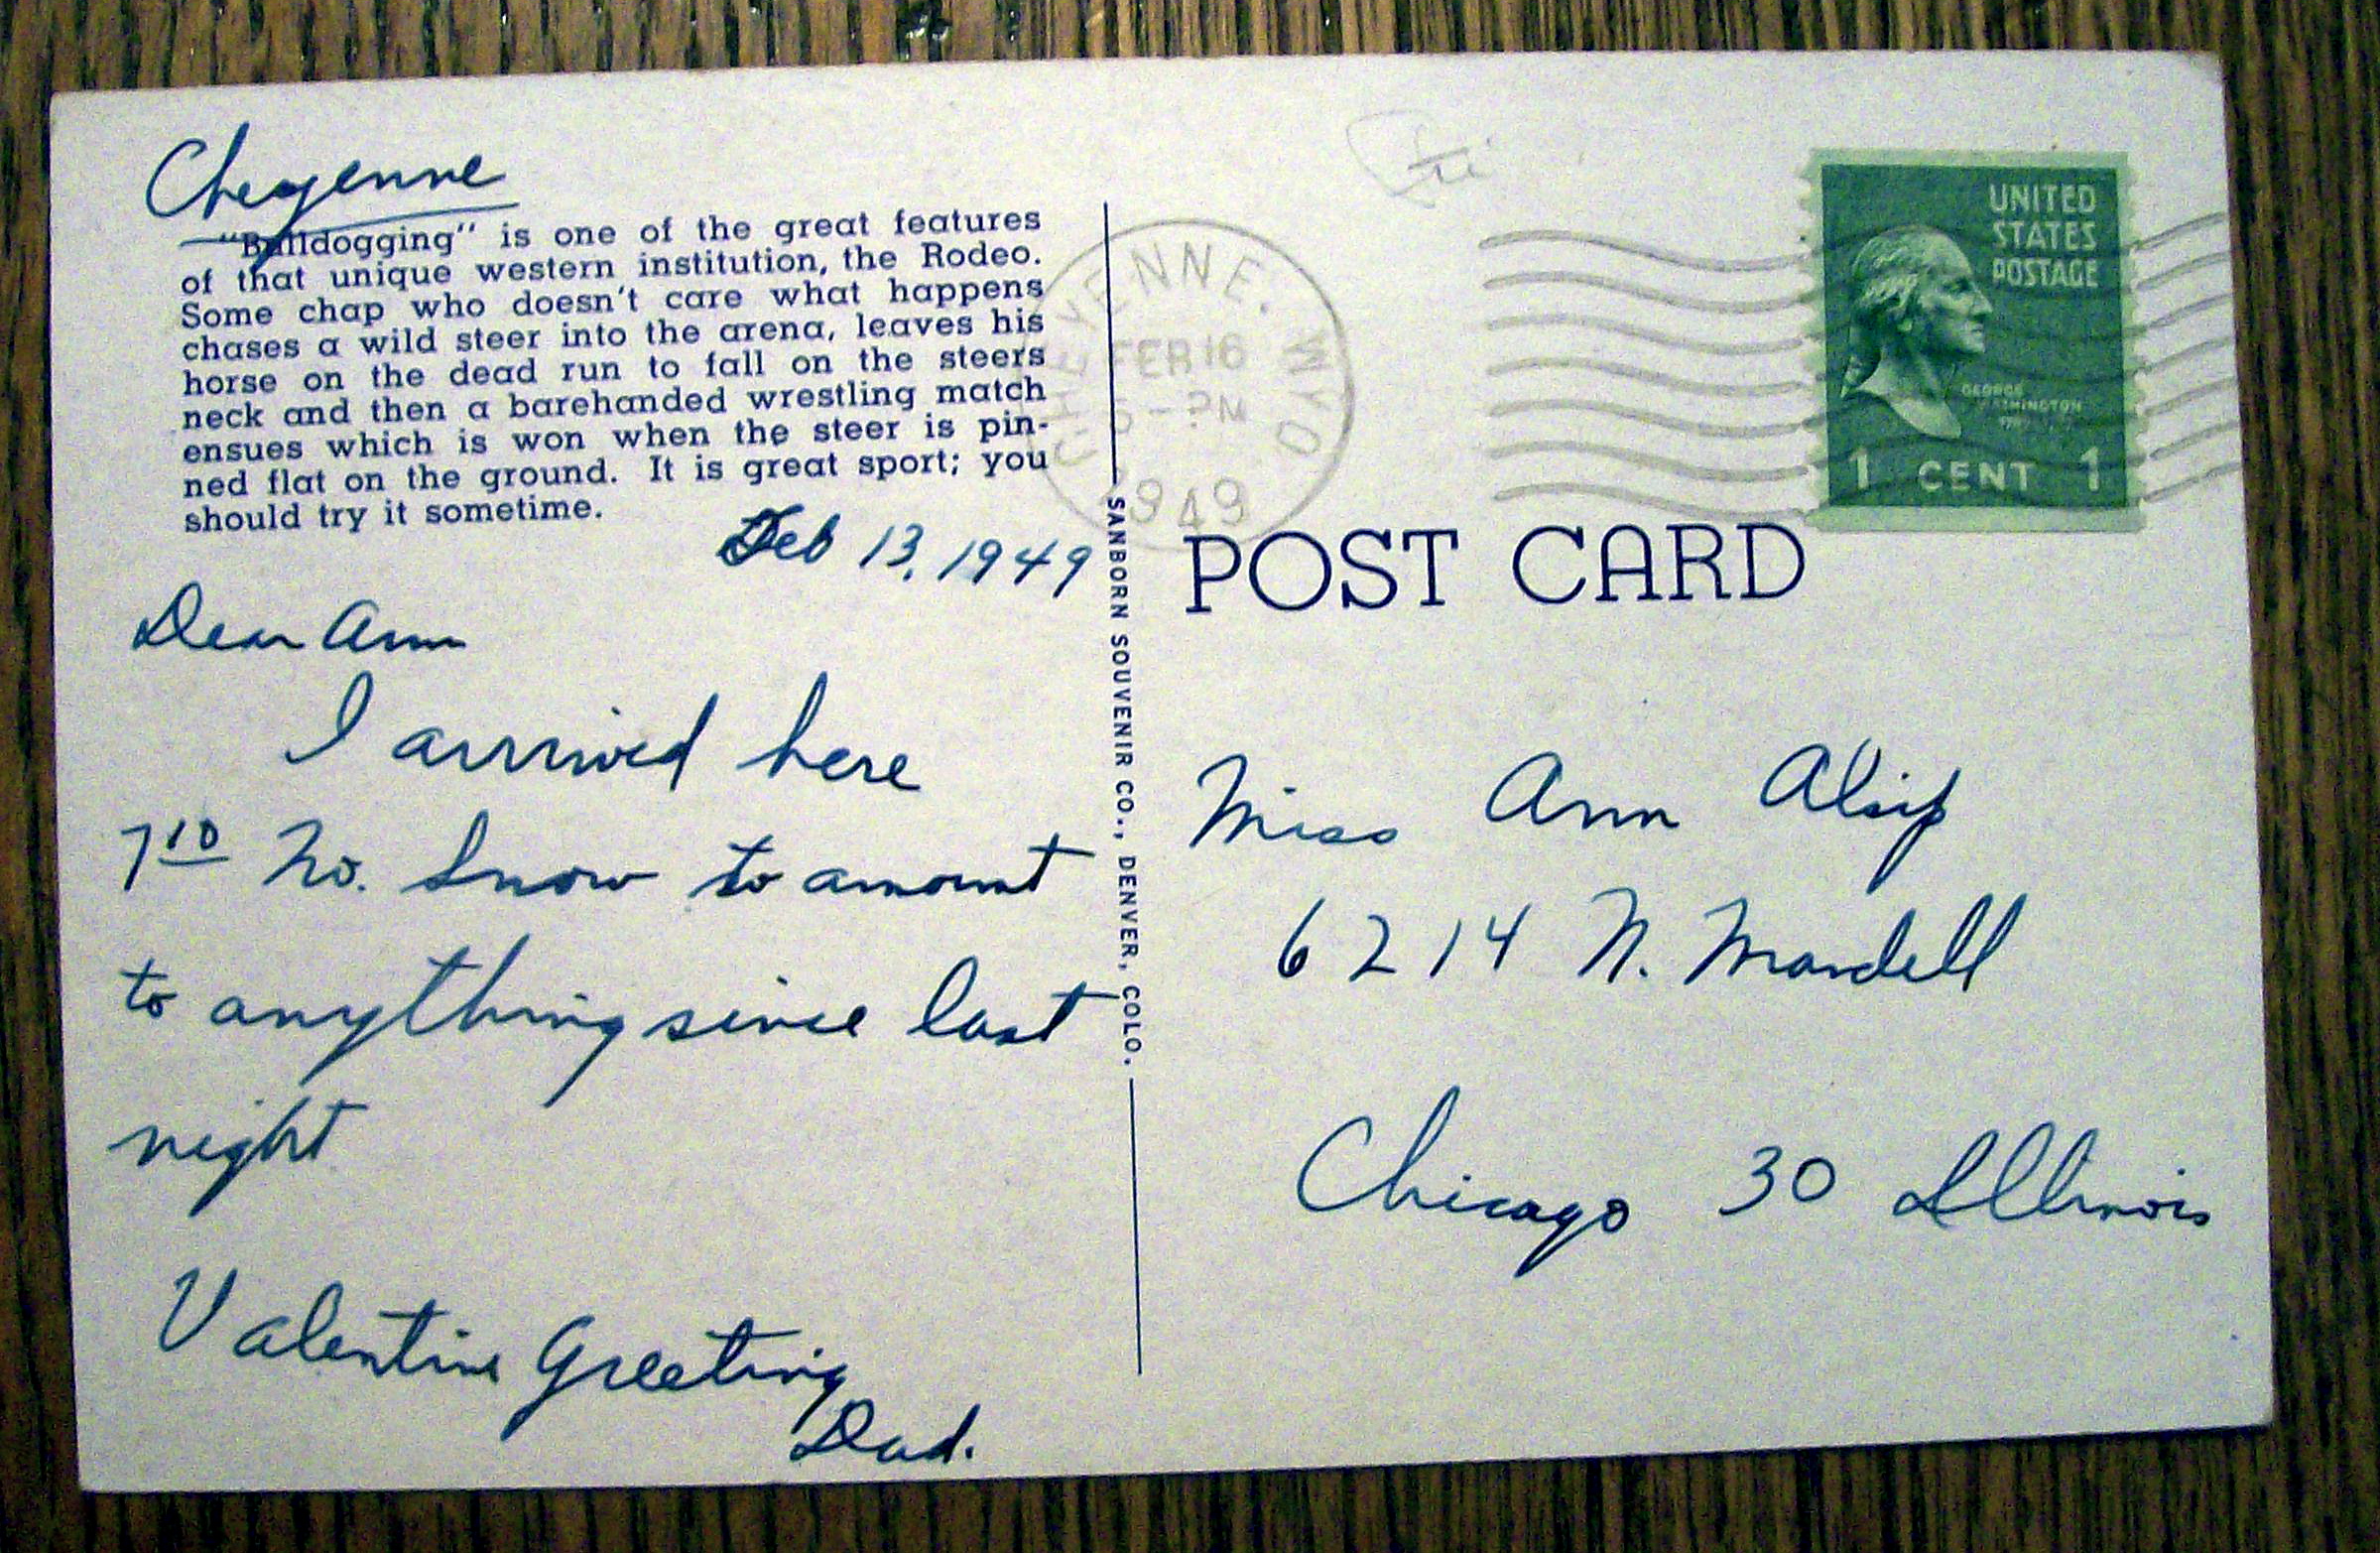 Cheyenne
"Bulldogging" is one of the great features
of that unique western institution, the Rodeo.
Some chap who doesn't care what happens
chases a wild steer into the arena, leaves his
horse on the dead run to fall on the steers
neck and then a barehanded wrestling match
ensues which is won when the steer is pin-
ned flat on the ground. It is great sport; you
should try it sometime.
Feb 13, 1949
Dear Ann
I arrived here
7 10 No. Snow to amount
to anything since last
night
Valentine Greeting
Dad.
SANBORN SOUVENIR CO., DENVER, COLO.
CHEYENNE. WYO
FEB 16
PM
1949
UNITED
STATES
POSTAGE
GEORGE
WASHINGTON
1 CENT 1
POST CARD
Miss Ann Alsip
6214 N. Mandell
Chicago 30 Illinois